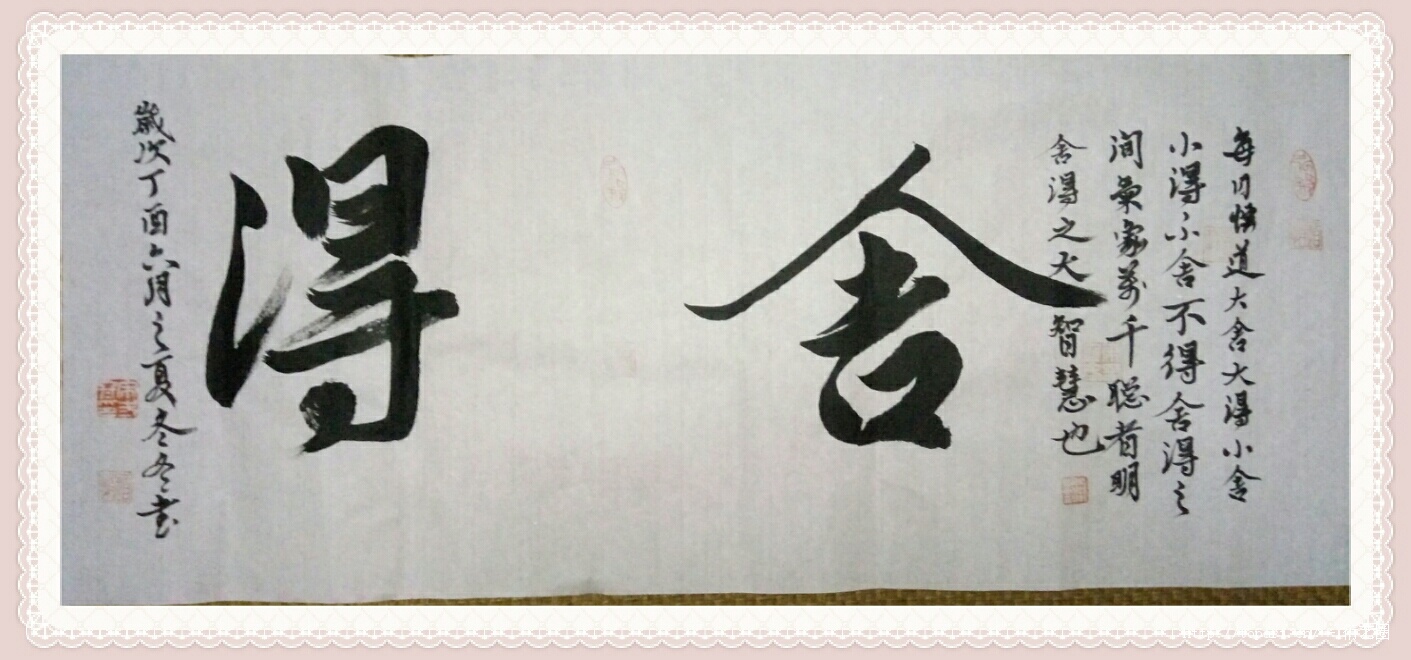 每日悟道大舍大得小舍
小得不舍不得舍得之
间气象万千聪者明
舍得之大智慧也
舍得
歲次丁酉六月之夏冬冬書